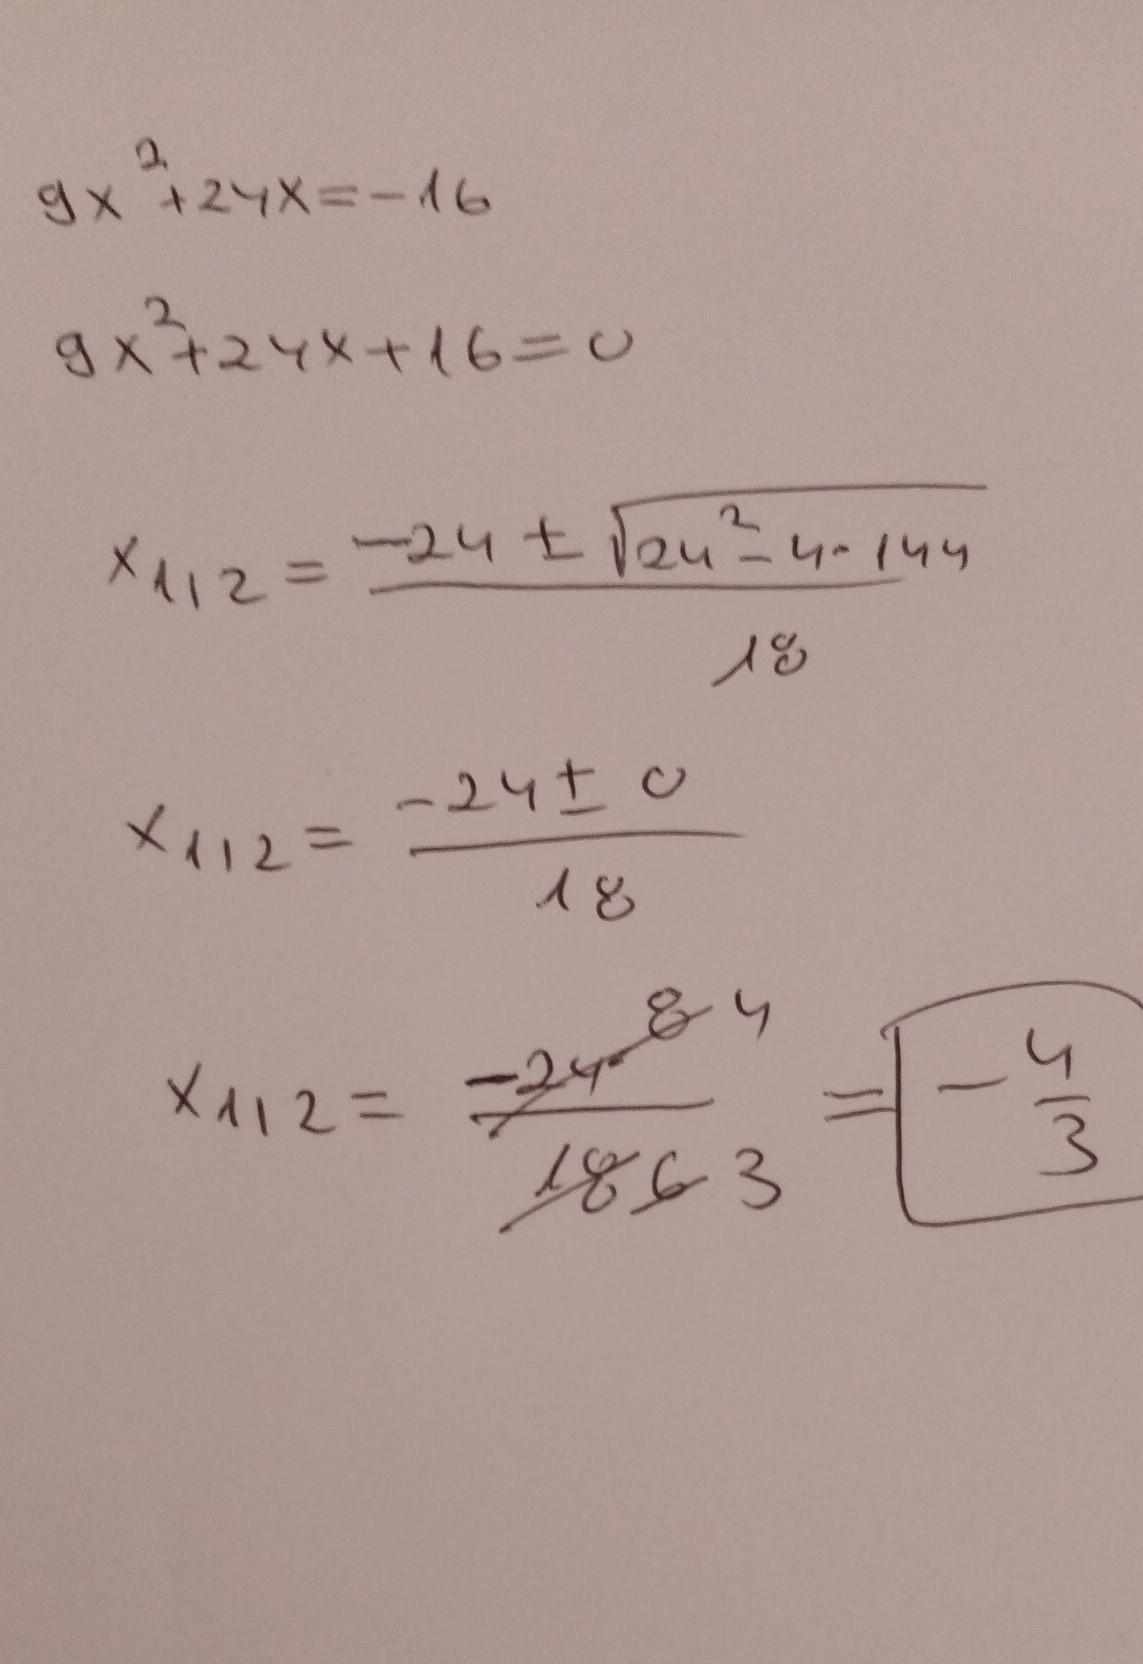 9x²+24x=-16
9x²+24x+16=0
x₁,₂ = (-24 ± √(24²-4·144)) / 18
x₁,₂ = (-24 ± 0) / 18
x₁,₂ = -24 8 4 / 18 6 3 = -4/3